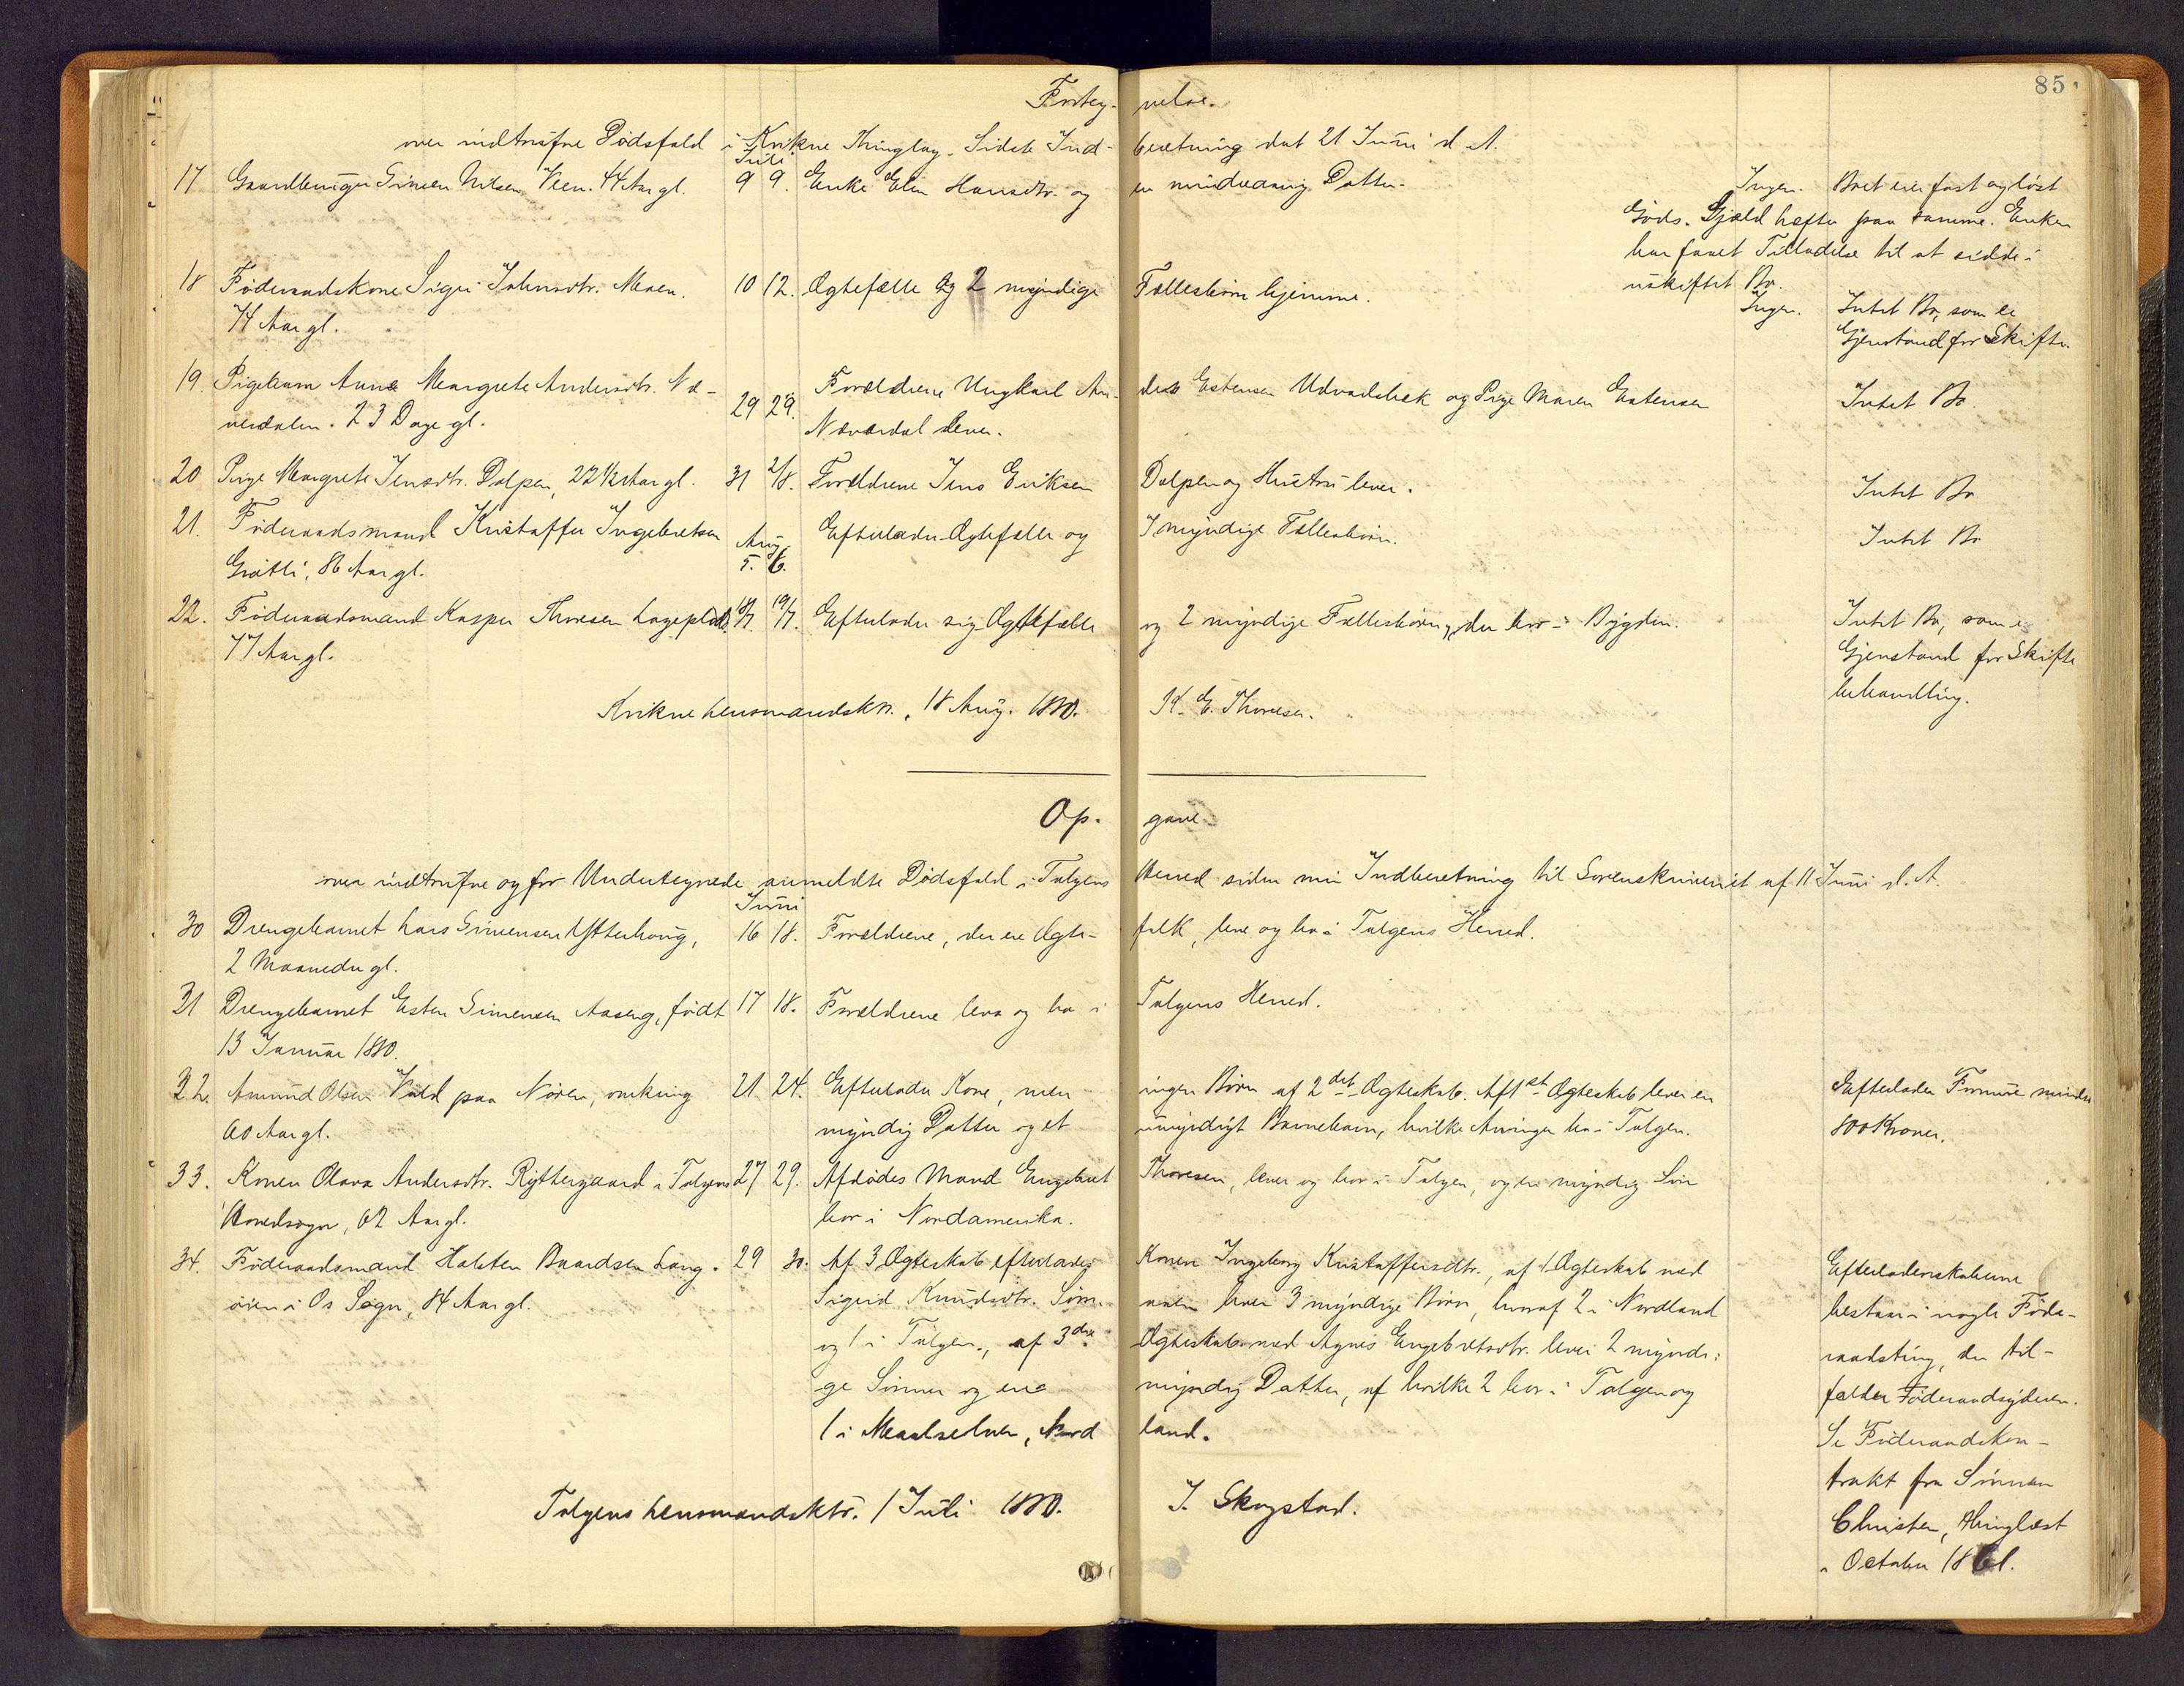 85
Forteg- nelse.
over indtrufne Dødsfald i Kvikne Thinglag. Sidste Ind- beretning dat 21 Juni d. A.
Juli
17 Gaardbruger Simen Nilsen Veen. 44 Aar gl. 9 9. Enke Elen Hansdtr. og en mindreaarig Datter. Ingen. Boet eier fast og løst
Gods. Gjæld hefter paa samme. Enken
har faaet Tilladelse til at sidde i
uskiftet Bo.
18 Føderaadskone Sigri Johnsdtr. Moen. 10 12. Ægtefælle og 2 myndige Fællesbørn hjemme. Ingen. Intet Bo, som er
74 Aar gl. Gjenstand for Skifte.
19. Pigebarn Anne Margrete Andersdtr. Næ- 29 29. Forældrene Ungkarl An- ders Estensen Udvadsbæk og Pige Maren Estensen Intet Bo
verdalen. 23 Dage gl. Næverdal lever.
20 Pige Margrete Jensdtr. Dalpen, 22 1/2 Aar gl. 31 2/8. Forældrene Jens Eriksen Dalpen og Hustru lever. Intet Bo
21. Føderaadsmand Kristoffer Ingebretsen Aug. Efterlader Ægtefælle og 7 myndige Fællesbørn. Intet Bo
Grøtli, 86 Aar gl. 5. 6.
22. Føderaadsmand Kasper Thoresen Lageplads. 18/7. 19/7. Efterlader sig Ægtefælle og 2 myndige Fællesbørn, der bor i Bygden. Intet Bo, som er
77 Aar gl. Gjenstand for Skifte
behandling.
Kvikne Lensmandsktr., 18 Aug. 1880. K. E. Thoresen.
Op- gave
over indtrufne og for Undertegnede anmeldte Dødsfald i Tolgens Herred siden min Indberetning til Sorenskriveriet af 11 Juni d. A.
Juni
30 Drengebarnet Lars Simensen Ytterhoug, 16 18. Forældrene, der ere Ægte- folk, leve og bo i Tolgens Herred.
2 Maaneder gl.
31 Drengebarnet Esten Simensen Aaseng, født 17 18. Forældrene leve og bo i Tolgens Herred.
13 Januar 1880.
32. Amund Olsen Vold paa Nøren, omkring 21 24. Efterlader Kone, men ingen Børn af 2det Ægteskab. Af 1ste Ægteskab lever en Efterlader Formue mindre
60 Aar gl. myndig Datter og et umyndigt Barnebarn, hvilke Arvinger bo i Tolgen. 800 Kroner.
33. Konen Olava Andersdtr. Ryttergaard i Tolgens 27 29. Afdødes Mand Engebret Thoresen, lever og bor i Tolgen, og en myndig Søn
Hovedsogn, 62 Aar gl. bor i Nordamerika.
34. Føderaadsmand Halsten Baardsen Lang- 29 30. Af 3 Ægteskab efterlades Konen Ingeborg Kristoffersdtr., af 1 Ægteskab med Efterladenskaberne
øien i Os Sogn, 84 Aar gl. Sigrid Knudsdtr. Søm- aaen lever 3 myndige Børn, hvoraf 2 i Nordland bestaar i nogle Føde-
og 1 i Tolgen, af 3die Ægteskab med Agnes Engebretsdtr. lever 2 myndi- raadsting, der til-
ge Sønner og en myndig Datter, af hvilke 2 bor i Tolgen og falder Føderaadsyderen.
1 i Maalselven, Nord land. Se Føderaadskon-
trakt fra Sønnen
Christen, thinglæst
i October 1861.
Tolgens Lensmandsktr. 1 Juli 1880. J. Skogstad.